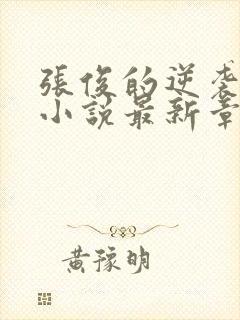 張俊的逆袭
小說最新章
黃豫明